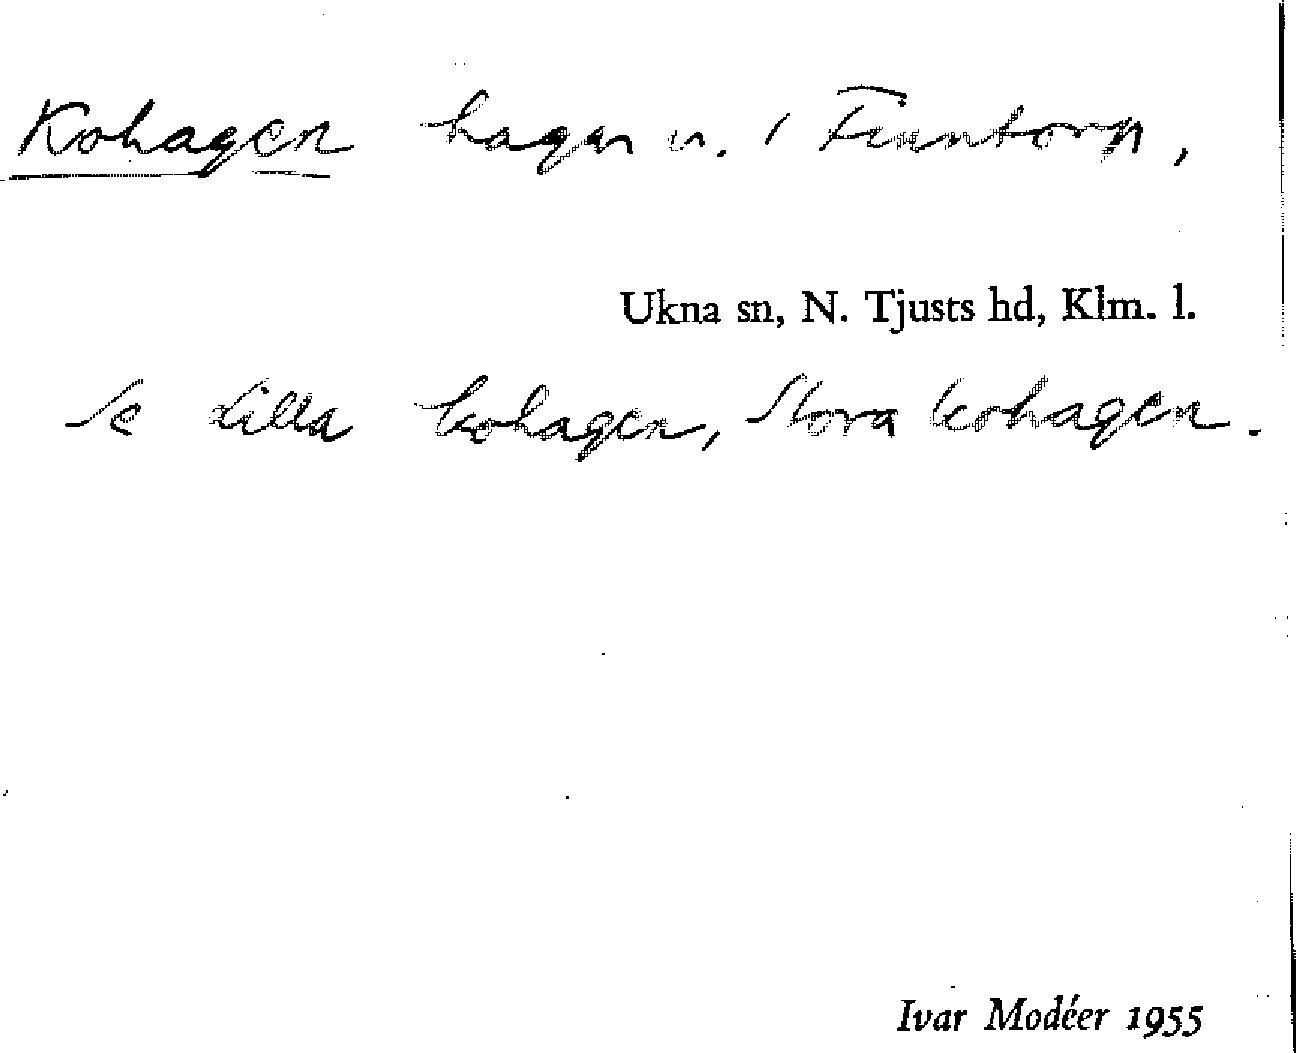 Kohagen hagar u. i Finntorp,
Ukna sn, N. Tjusts hd, Klm. l.
Se Lilla kohagen, Stora kohagen.
Ivar Modéer 1955